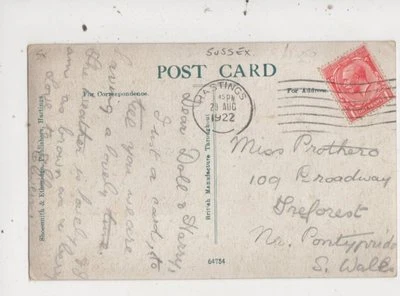 SUSSEX
POST CARD
For Correspondence.
For Address.
HASTINGS
45PM
28 AUG
1922
Dear Doll & Harry,
Just a card, to
tell you we are
having a lovely time.
the weather is lovely &
am a brown as a berry
love to
Miss Prothero
109 Broadway
Treforest
Nr. Pontypridd
S. Wales
Shoesmith & Etheridge, Publishers, Hastings
British Manufacture Throughout
64754